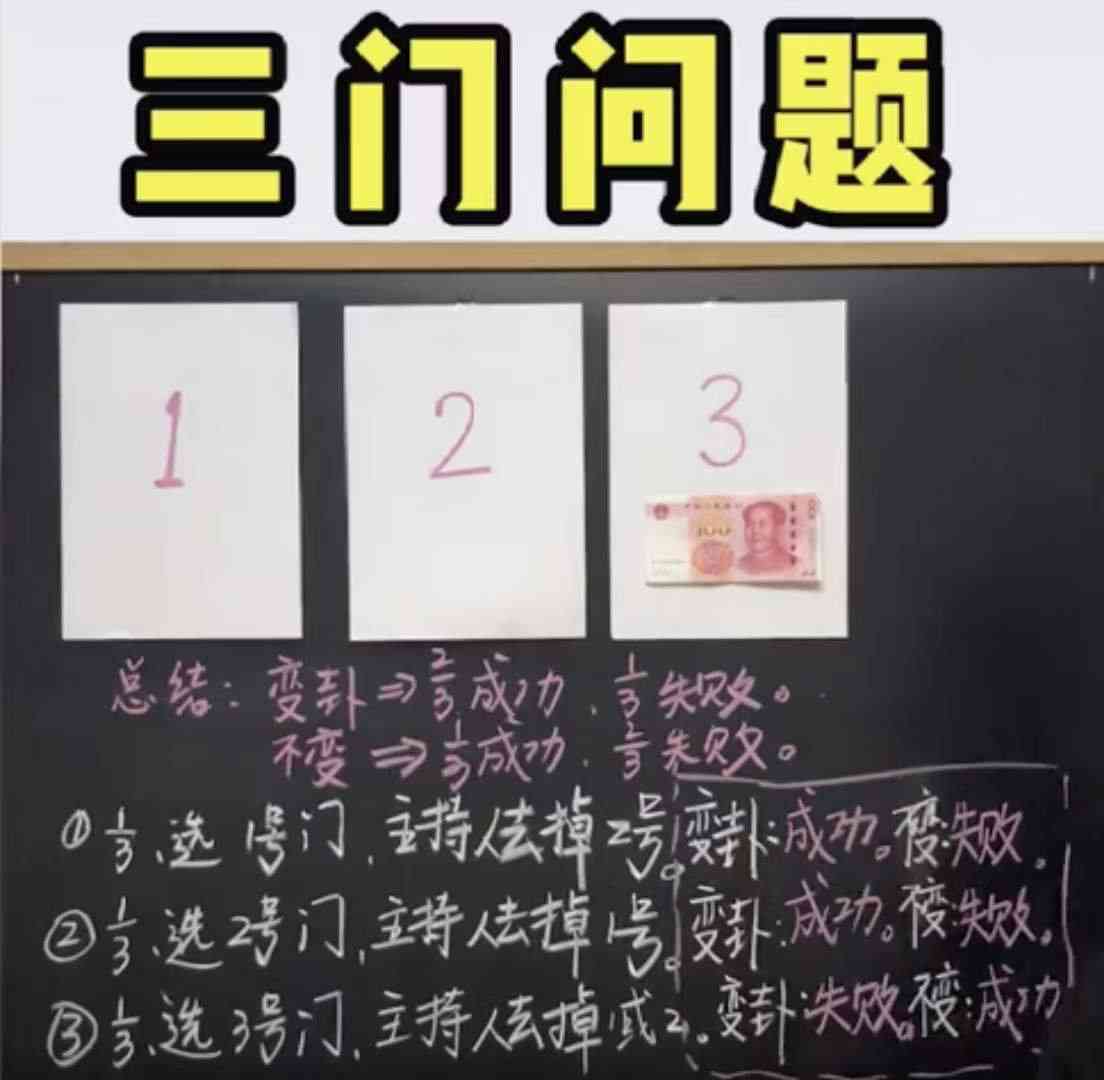 三门问题
1 2 3
100
总结：变卦⇒2/3成功、1/3失败。
不变⇒1/3成功、2/3失败。
①1/3、选1号门，主持人去掉2号。变卦：成功。不变：失败。
②1/3、选2号门，主持人去掉1号。变卦：成功。不变：失败。
③1/3、选3号门，主持人去掉1或2。变卦：失败。不变：成功